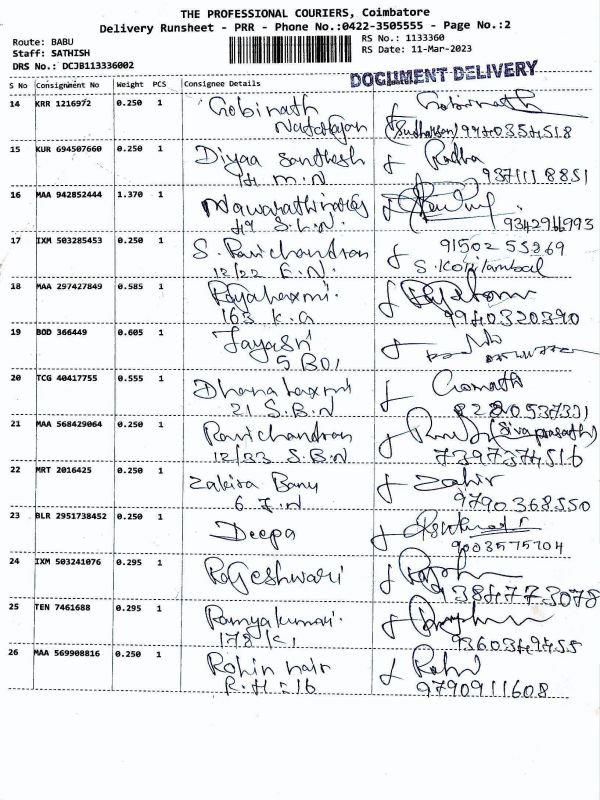 THE PROFESSIONAL COURIERS, Coimbatore
Delivery Runsheet - PRR - Phone No.:0422-3505555 - Page No.:2
Route: BABU
RS No.: 1133360
Staff: SATHISH
RS Date: 11-Mar-2023
DRS No.: DCJB113336002
S No Consignment No Weight PCS Consignee Details
DOCUMENT DELIVERY
14 KRR 1216972 0.250 1 Gobinath Gobinath
9940354518
15 KUR 694507660 0.250 1 Diyaa Santhosh Radha
9371118851
16 MAA 942852444 1.370 1
49 S.L.N
17 IXM 503285453 0.250 1 S. Ravichandran 91502 55269
12/22 S.
18 MAA 297427849 0.585 1 Rajalaxmi.
163 K.G 9940320390
19 BOD 366449 0.605 1 Jayasri
5 B01
20 TCG 40417755 0.555 1 Dhanalaxmi Gomath
21 S.B.N
21 MAA 568429064 0.250 1 Ravichandran (Sivaprasath)
12/33 S.B.N 7397374516
22 MRT 2016425 0.250 1 Zakira Banu Zahir
6 J.N 9790368550
23 BLR 2951738452 0.250 1 Deepa
9003575704
24 IXM 503241076 0.295 1 Rajeshwari
9384773078
25 TEN 7461688 0.295 1 Ramyakumari.
178 K1 9360349455
26 MAA 569908816 0.250 1 Rohin nair
R.H - 16 9790911608